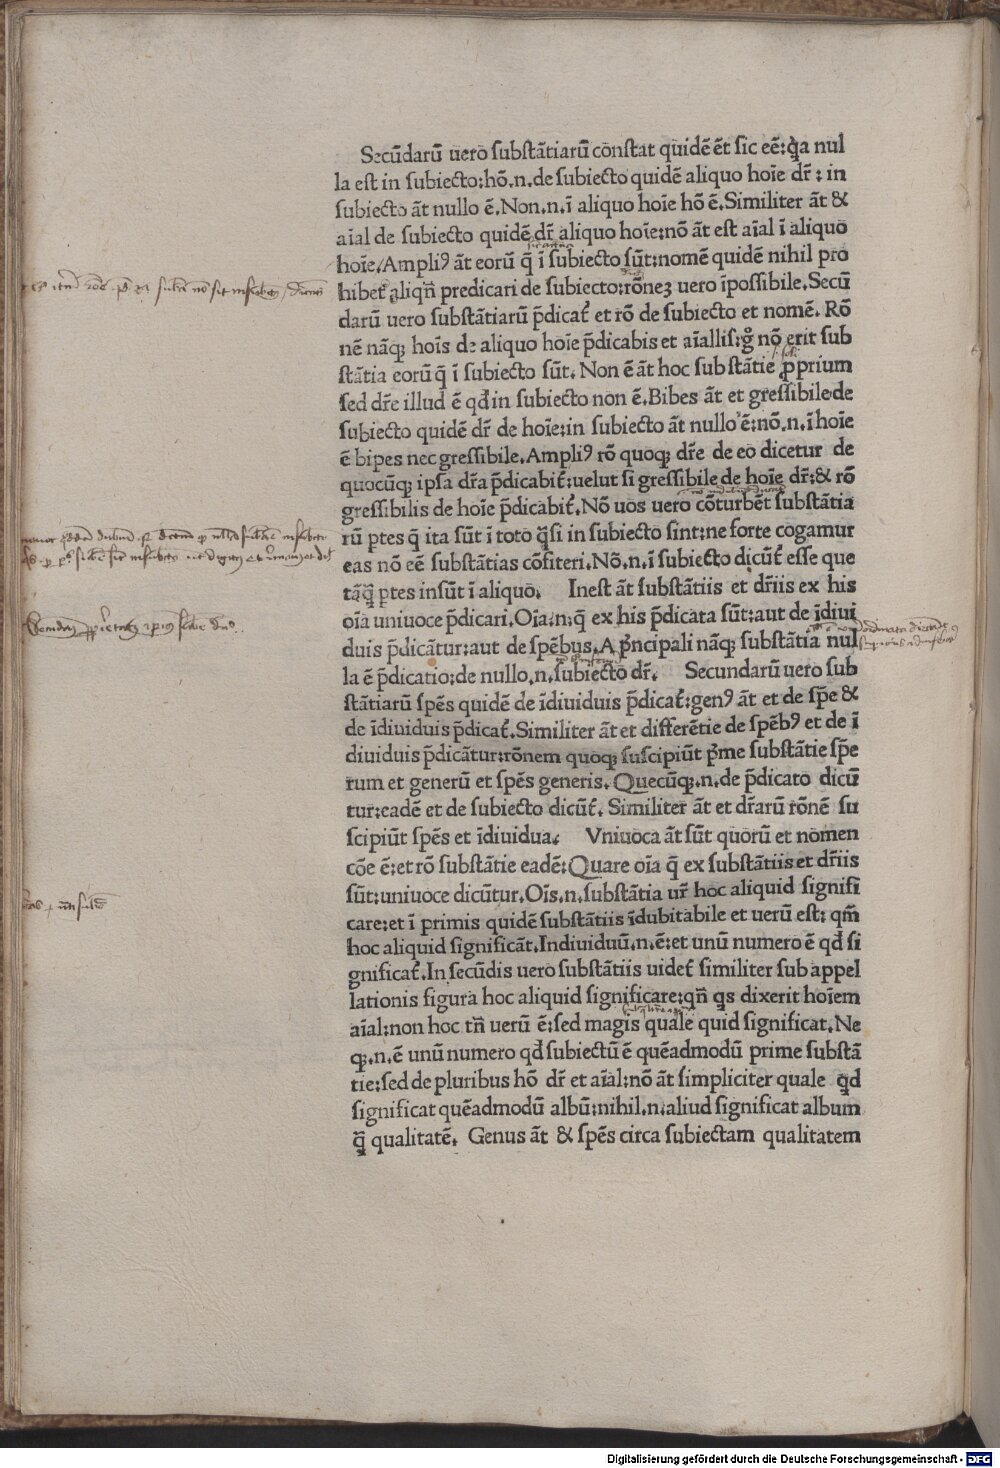 Secūdarū uero substātiarū constat quidē ēt sic eē: qa nul
la est in subiecto: hō.n. de subiecto quidē aliquo hoīe dr̄: in
subiecto āt nullo ē. Non.n. ī aliquo hoīe hō ē. Similiter āt &
aīal de subiecto quidē dr̄ aliquo hoīe: nō āt est aīal ī aliquo
hoīe. Ampliꝰ āt eorū q̄ ī subiecto sūt: nomē quidē nihil pro
hibet aliqn̄ predicari de subiecto: rōneꝫ uero īpossibile. Secū
darū uero substātiarū p̄dicat᷑ et rō de subiecto et nomē. Rō
nē nāqꝫ hoīs de aliquo hoīe p̄dicabis et aīallis: gͦ nō erit sub
stātia eorū q̄ ī subiecto sūt. Non ē āt hoc substātie ꝓprium
sed dr̄e illud ē qd̄ in subiecto non ē. Bibes āt et gressibile de
subiecto quidē dr̄ de hoīe: in subiecto āt nullo ē: nō.n. ī hoīe
ē bipes nec gressibile. Ampliꝰ rō quoqꝫ dr̄e de eo dicetur de
quocūqꝫ ipsa dr̄a p̄dicabit᷑: uelut si gressibile de hoīe dr̄: & rō
gressibilis de hoīe p̄dicabit᷑. Nō uos uero cōturbēt substātia
rū ꝑtes q̄ ita sūt ī toto q̄si in subiecto sint: ne forte cogamur
eas nō eē substātias cōfiteri. Nō.n. ī subiecto dicūt᷑ esse que
tāqꝫ̄ ꝑtes insūt ī aliquo. Inest āt substātiis et dr̄iis ex his
oīa uniuoce p̄dicari. Oīa.n. q̄ ex his p̄dicata sūt: aut de īdiui
duis p̄dicātur: aut de spēbus. A pͥncipali nāqꝫ substātia nul
la ē p̄dicatio: de nullo.n. subiecto dr̄. Secundarū uero sub
stātiarū spēs quidē de īdiuiduis p̄dicat᷑: genꝰ āt et de sp̄e &
de īdiuiduis p̄dicat᷑. Similiter āt et differētie de spēbꝰ et de ī
diuiduis p̄dicātur: rōnem quoqꝫ suscipiūt pͥme substātie sp̄e
rum et generū et spēs generis. Quecūqꝫ.n. de p̄dicato dicū
tur: eadē et de subiecto dicūt᷑. Similiter āt et dr̄arū rōnē su
scipiūt spēs et īdiuidua. Vniuoca āt sūt quorū et nomen
cōe ē: et rō substātie eadē: Quare oīa q̄ ex substātiis et dr̄iis
sūt: uniuoce dicūtur. Oīs.n. substātia ur̄ hoc aliquid signifi
care: et ī primis quidē substātiis īdubitabile et uerū est: qm̄
hoc aliquid significāt. Indiuiduū.n. ē: et unū numero ē qd̄ si
gnificat᷑. In secūdis uero substātiis uidet᷑ similiter sub appel
lationis figura hoc aliquid significare: qn̄ qs dixerit hoīem
aīal: non hoc tn̄ uerū ē: sed magis quale quid significat. Ne
qꝫ.n. ē unū numero qd̄ subiectū ē quēadmodū prime substā
tie: sed de pluribus hō dr̄ et aīal: nō āt simpliciter quale qd
significat quēadmodū albū: nihil.n. aliud significat album
qꝫ̄ qualitatē. Genus āt & spēs circa subiectam qualitatem
Digitalisierung gefördert durch die Deutsche Forschungsgemeinschaft - DFG